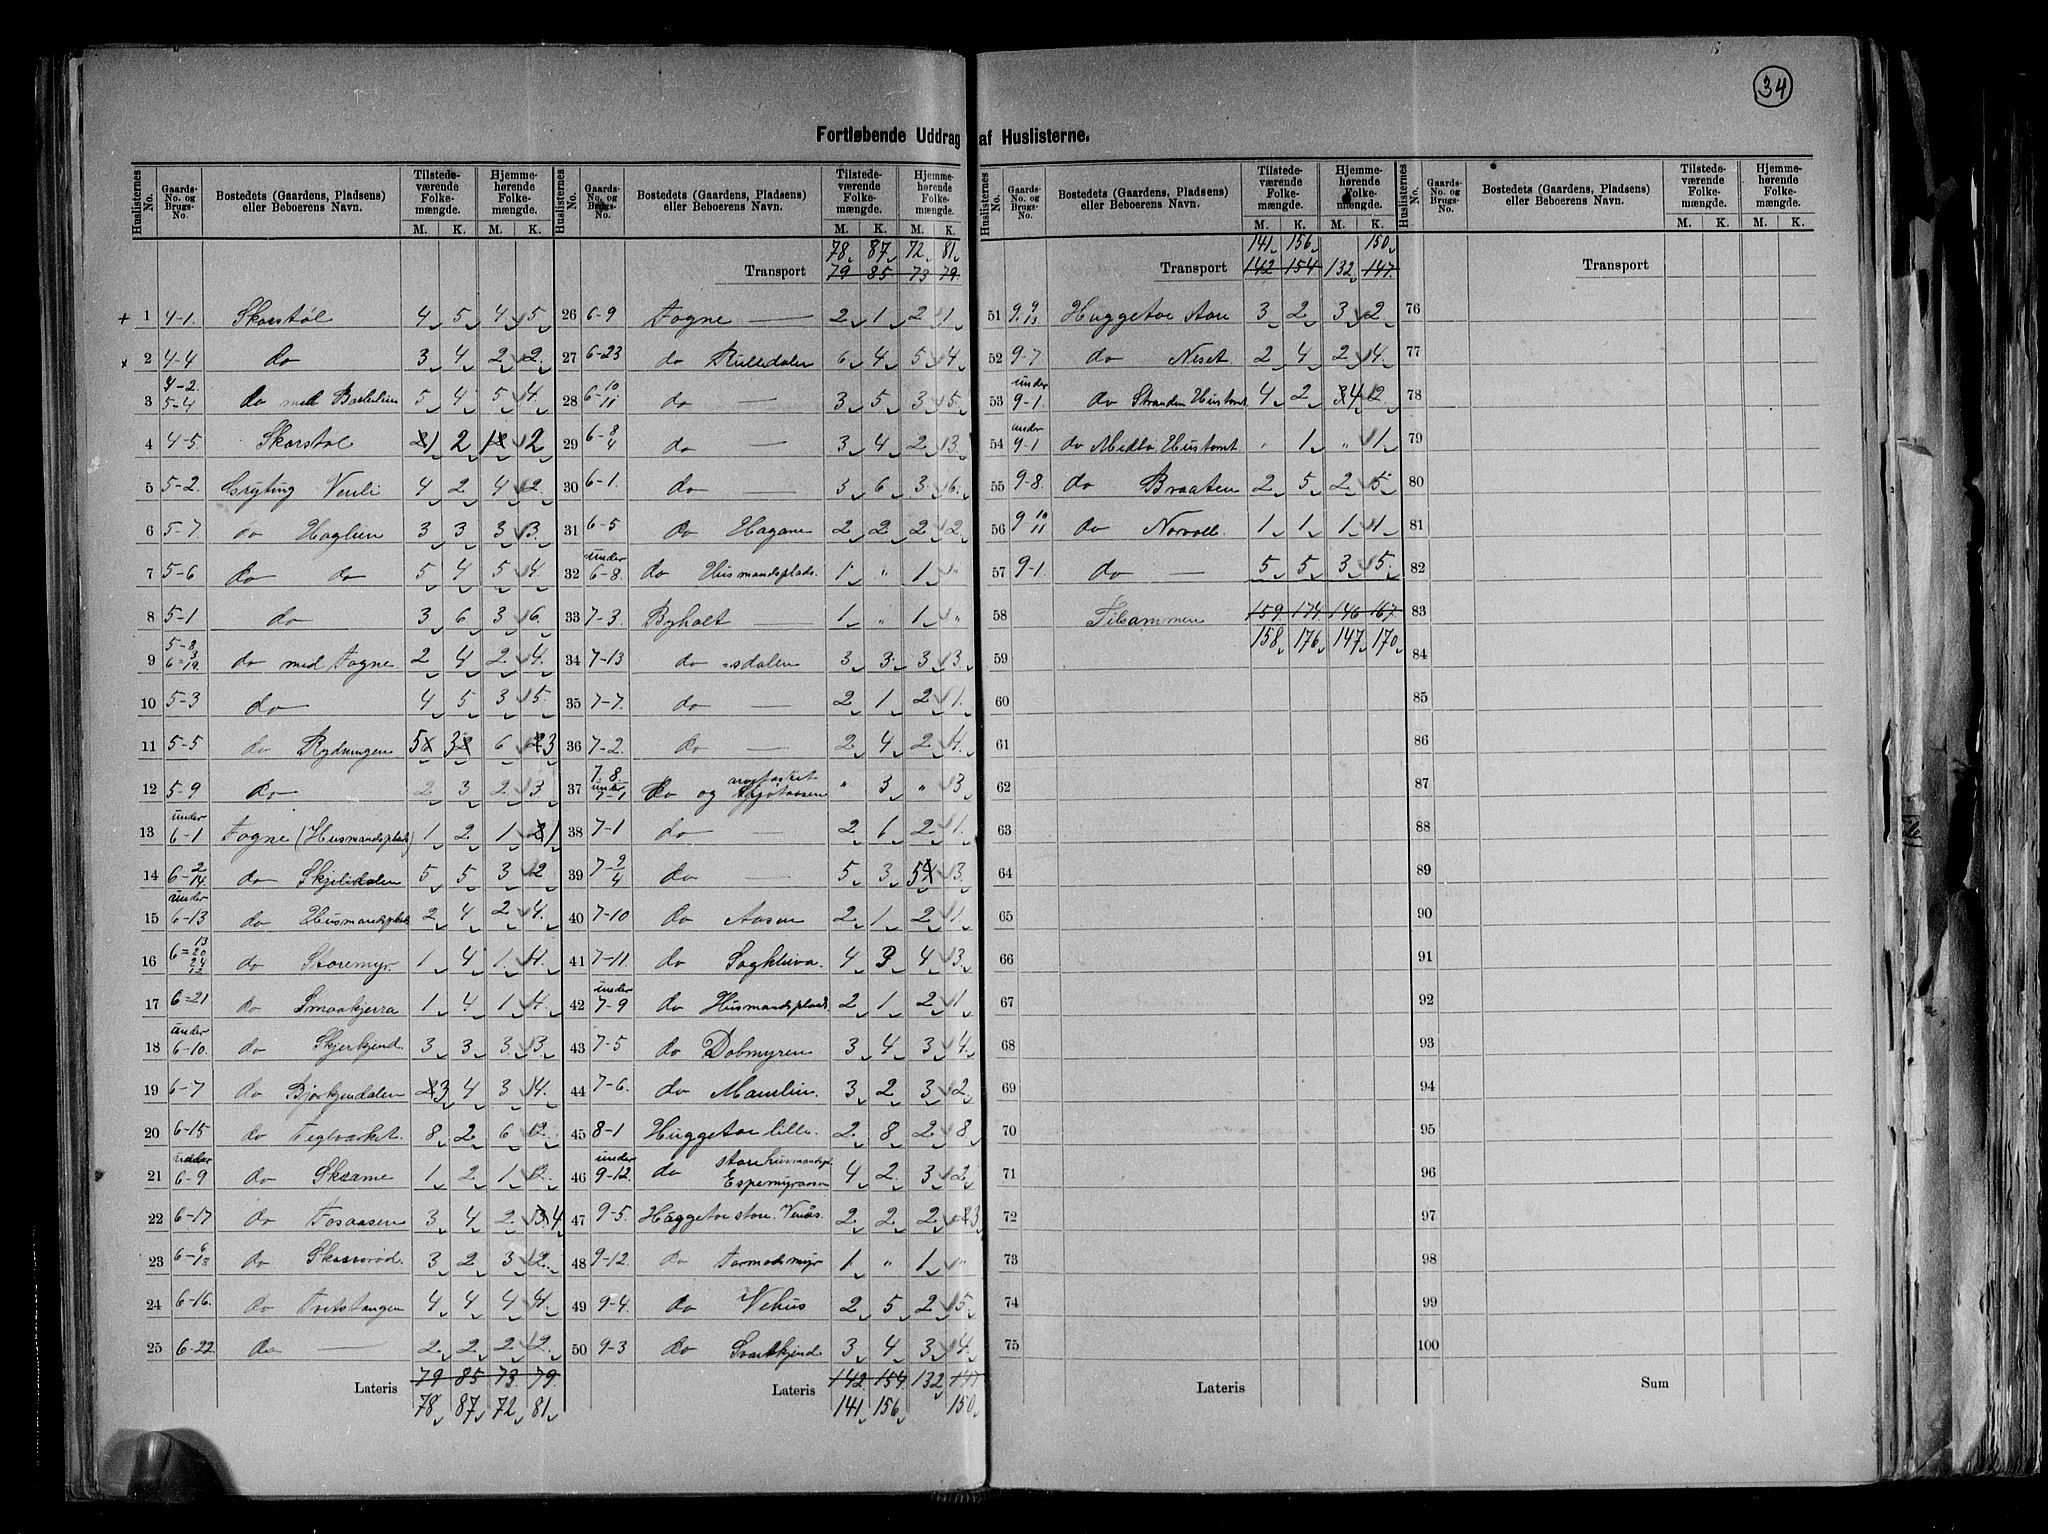 34
Fortløbende Uddrag af Huslisterne.
Huslisternes No. Gaards-No. og Brugs-No. Bostedets (Gaardens, Pladsens) eller Beboerens Navn. Tilstedeværende Folkemængde. M. K. Hjemmehørende Folkemængde. M. K.
+ 1 4-1. Skorstøl 4 5 4 5
x 2 4-4 do 3 4 2 2
3 4-2. 5-4 do med 5 4 5 4
4 4-5 Skorstøl 1 2 1 2
5 5-2. Gryting Venli 4 2 4 2
6 5-7. do Haglien 3 3 3 3
7 5-6 do do 5 4 5 4
8 5-1 do 3 6 3 6
9 5-8 6=3/19 do med Fogne 2 4 2 4
10 5-3 do 4 5 3 5
11 5-5 do Rydningen 5 3 6 3
12 5-9 do 2 3 2 3
13 under 6-1 Fogne (Husmandsplads) 1 2 1 1
14 6-2/14 do Skjelidalen 5 5 3 2
15 under 6-13 do Husmandsplads 2 4 2 4
16 6=13 20 24 12 do Storemyr. 1 4 1 4
17 6=21 do Smaakjerra 1 4 1 4
18 under 6-10. do Skjerkjend. 3 3 3 3
19 6-7 do Bjørkjendalen 3 4 3 4
20 6-15 do Teglværket. 8 2 6 2
21 under 6-9 do 1 2 1 2
22 6-17 do Fosaasen 3 4 2 4
23 6-6/18 do 3 2 3 2
24 6-16. do Tvitstangen 4 4 4 4
25 6-22 do — 2 2 2 2
Lateris 79 85 73 79
78 87 72 81
Huslisternes No. Gaards-No. og Brugs-No. Bostedets (Gaardens, Pladsens) eller Beboerens Navn. Tilstedeværende Folkemængde. M. K. Hjemmehørende Folkemængde. M. K.
78 87 72 81
Transport 79 85 73 79
26 6-9 Fogne — 2 1 2 1
27 6-23 do Rulledalen 6 4 5 4
28 6-10/11 do — 3 5 3 5
29 6-8/4 do — 3 4 2 3
30 6-1. do — 3 6 3 6
31 6-5 do Hagane 2 2 2 2
32 under 6-8. do Husmandsplads. 1 " 1 "
33 7-3 Byholt — 1 " 1 "
34 7-13 do -sdalen 3 3 3 3
35 7-7. do — 2 1 2 1
36 7-2. do — 2 4 2 4
37 7-8. under 7-1 do og " 3 " 3
38 7-1 do — 2 1 2 1
39 7-9/4 do — 5 3 5 3
40 7-10 do Aasen 2 1 2 1
41 7-11. do Sagkleiva. 4 3 4 3
42 under 7-9 do Husmandsplads. 2 1 2 1
43 7-5 do Dobmyren 3 4 3 4
44 7-6. do Maurlien. 3 2 3 2
45 8-1 Huggetoe lille. 2 8 2 8
46 under 9-12. do store husmandspl. Espemyraasen 4 2 3 2
47 9-5. Huggetoe store. Venås. 2 2 2 3
48 9-12. do Tormodsmyr 1 " 1 "
49 9-4. do Vehus 2 5 2 5
50 9-3 do Svartkjend 3 4 3 4
Lateris 142 154 132 147
141 156 150
Huslisternes No. Gaards-No. og Brugs-No. Bostedets (Gaardens, Pladsens) eller Beboerens Navn. Tilstedeværende Folkemængde. M. K. Hjemmehørende Folkemængde. M. K.
141 156 150
Transport 142 154 132 147
51 9-9/13 Huggetoe store 3 2 3 2
52 9-7 do Neset 2 4 2 4
53 under 9-1. do Stranden Hustomt. 4 2 4 2
54 under 9-1 do Midbø Hustomt " 1 " 1
55 9-8. do Braaten 2 5 2 5
56 9-10/11 do Norvoll. 1 1 1 1
57 9-1. do — 5 5 3 5
58 Tilsammen 159 174 146 167
158 176 147 170
59
60
61
62
63
64
65
66
67
68
69
70
71
72
73
74
75
Lateris
Huslisternes No. Gaards-No. og Brugs-No. Bostedets (Gaardens, Pladsens) eller Beboerens Navn. Tilstedeværende Folkemængde. M. K. Hjemmehørende Folkemængde. M. K.
Transport
76
77
78
79
80
81
82
83
84
85
86
87
88
89
90
91
92
93
94
95
96
97
98
99
100
Sum